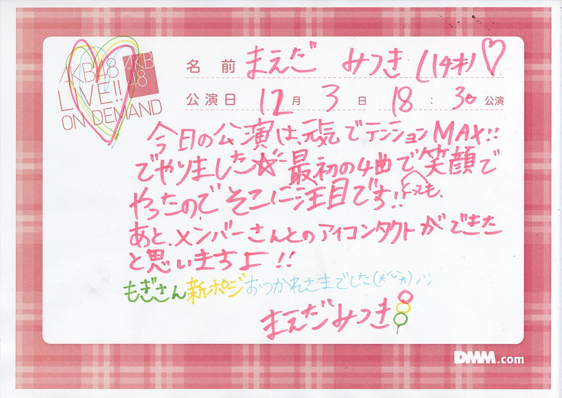 AKB48
LIVE!!
ON DEMAND
AKB
48
名前 まえだ みつき (14才)♡
公演日 12月 3日 18:30 公演
今日の公演は、元気でテンションMAX!!
でやりました☆ 最初の4曲で笑顔で
やったので そこに注目です!! とっても、
あと、メンバーさんとのアイコンタクトができた
と思いまちよ!!
もぎさん 新ポジ おつかれさまでした(*^~^*)
まえだみつき
DMM.com